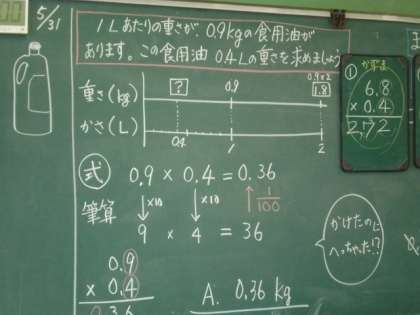 5/31
1Lあたりの重さが、0.9kgの食用油が
あります。この食用油0.4Lの重さを求めましょう
0.9×2
? 0.9 1.8
重さ(kg)
かさ(L)
0.4 1 2
式 0.9 × 0.4 = 0.36
筆算 ↓×10 ↓×10 ↑ 1/100
9 × 4 = 36
0.9
× 0.4
0.36
A. 0.36 kg
かけたのに
へっちゃった!?
①
6.8
× 0.4
2.72